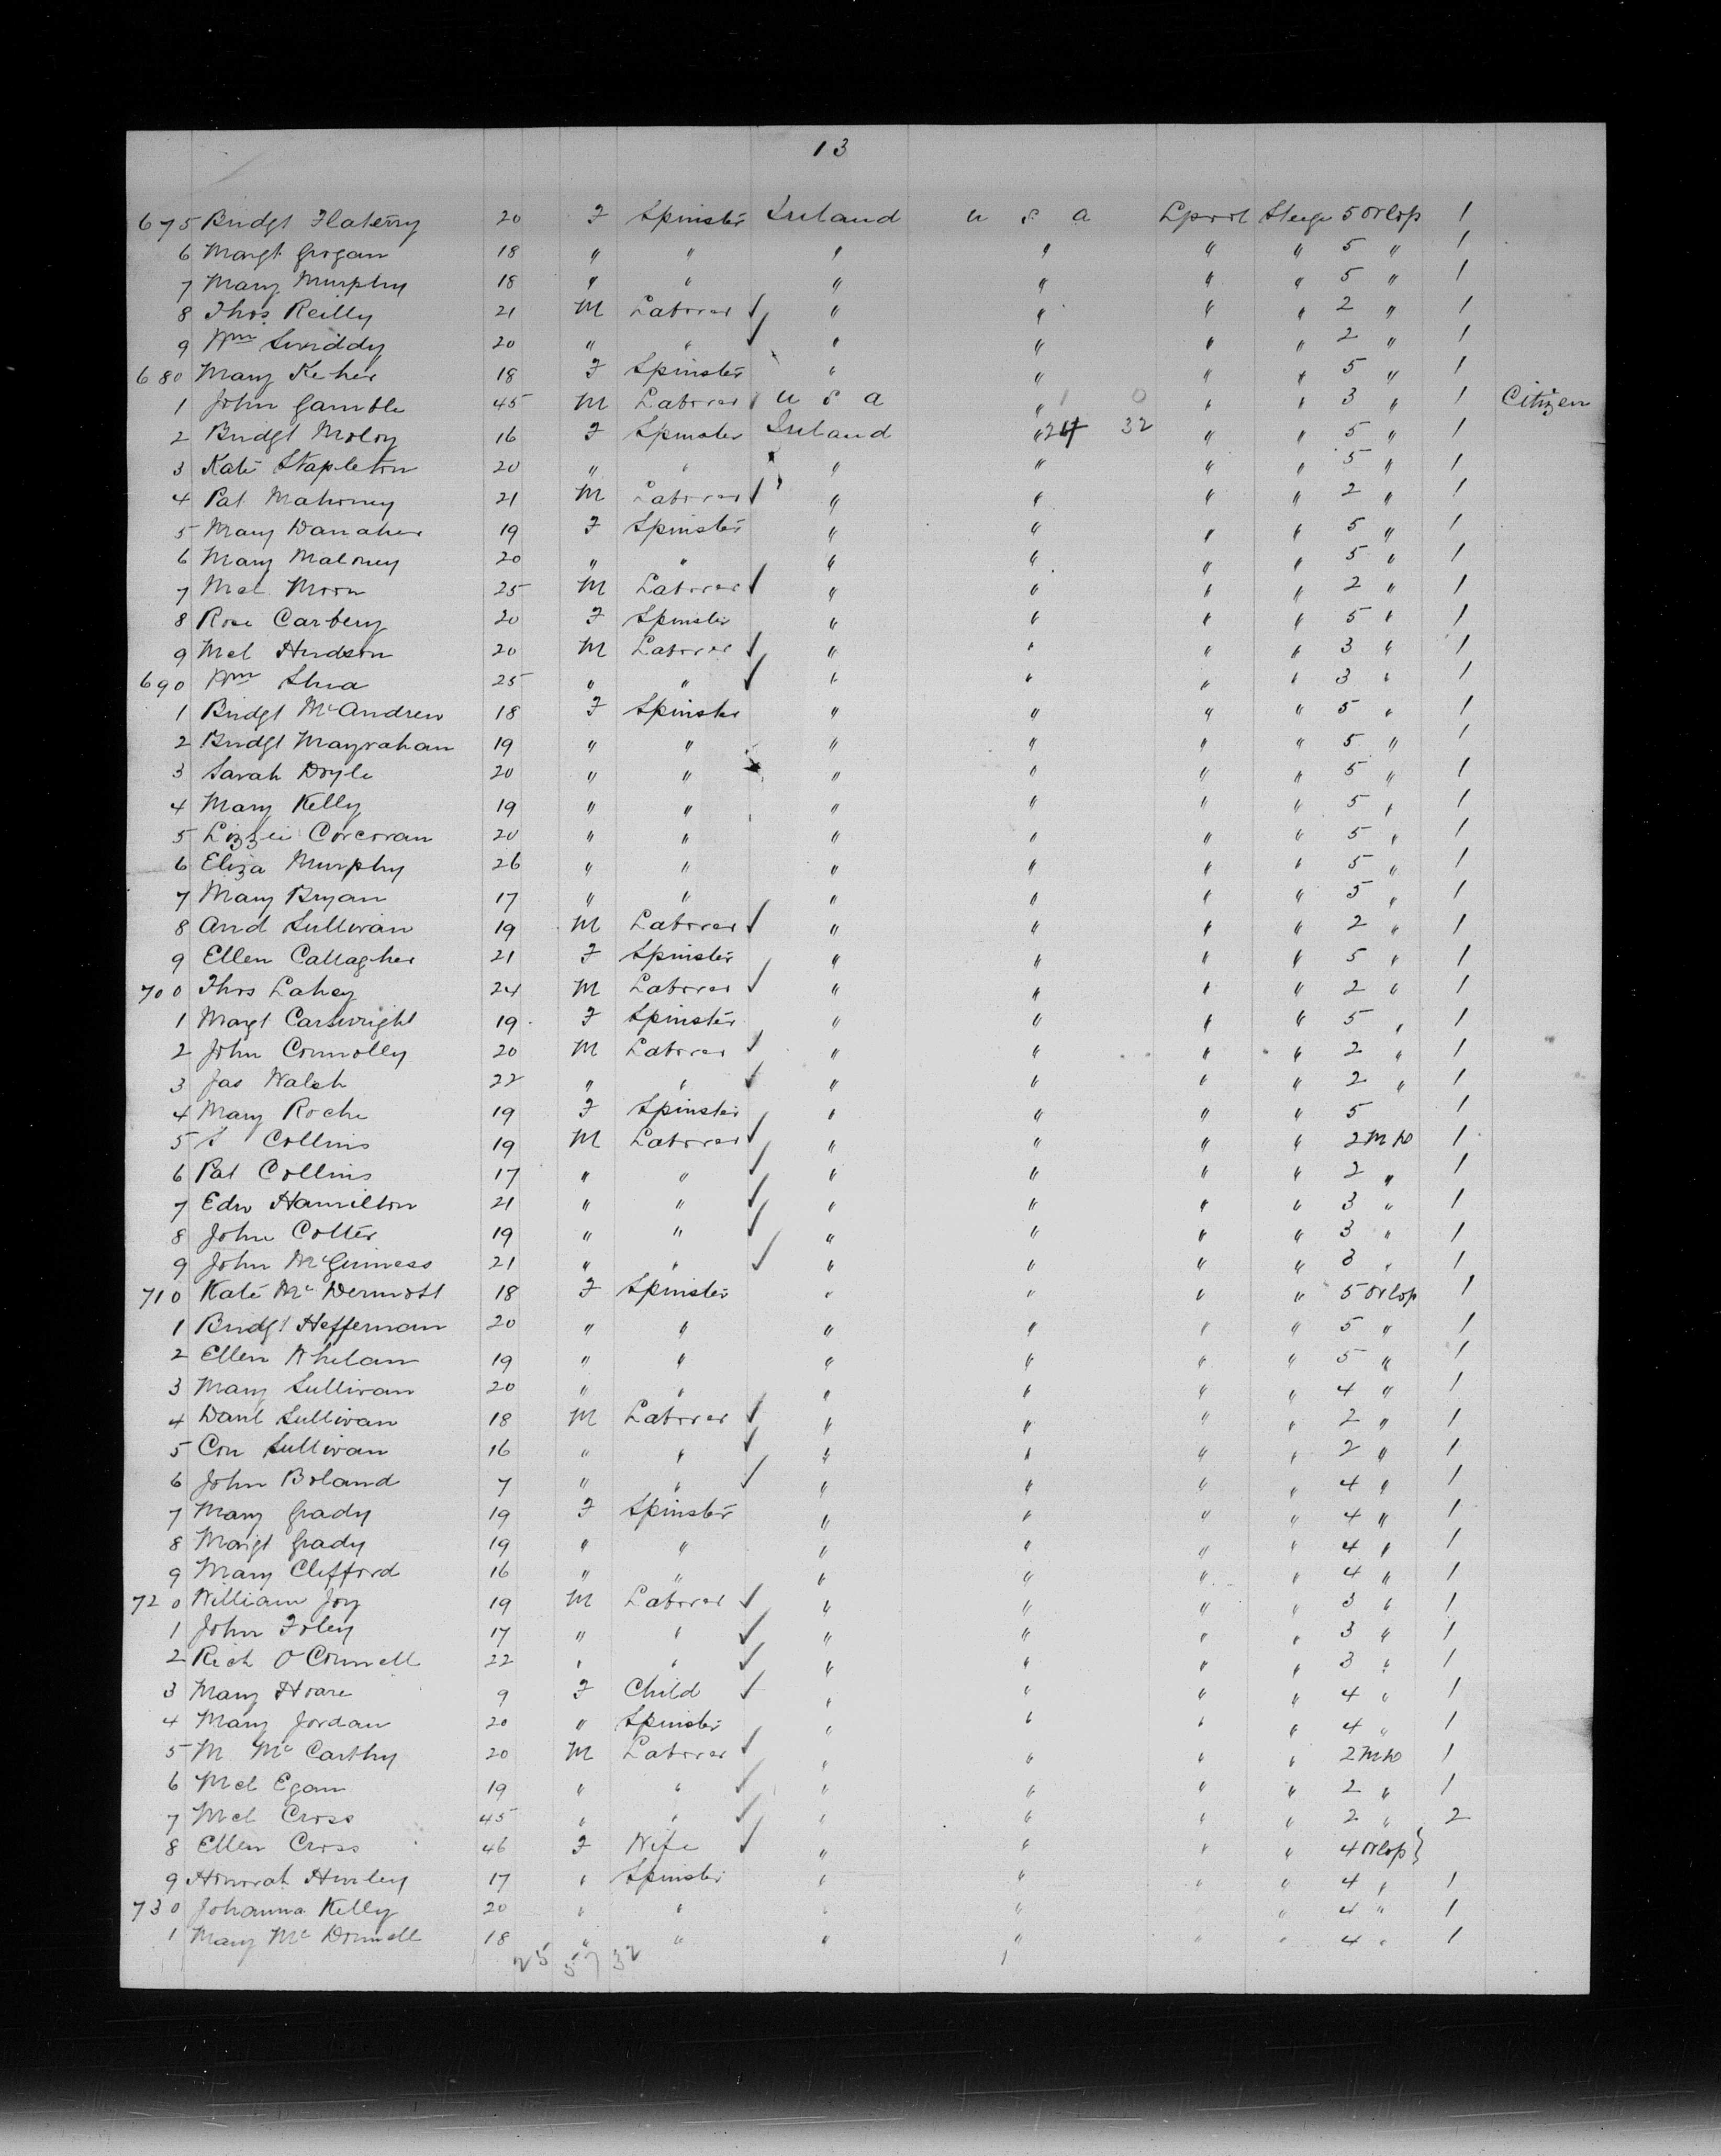 13
675 Bridgt Flaherry 20 F Spinster Ireland U S A Lpool Steege 5 Orlop 1
6 Margt Grogan 18 " " " " " " 5 " 1
7 Mary Murphy 18 " " " " " " 5 " 1
8 Thos Reilly 21 M Laborer ✓ " " " " 2 " 1
9 Wm 20 " " ✓ " " " " 2 " 1
680 Mary Keher 18 F Spinster " " " " 5 " 1
1 John Gamble 45 M Laborer U S A " 1 0 " " 3 " 1 Citizen
2 Bridgt Moloy 16 F Spinster Ireland " 24 32 " " 5 " 1
3 Kate Stapleton 20 " " " " " " 5 " 1
4 Pat Mahoney 21 M Laborer ✓ " " " " 2 " 1
5 Mary Danaher 19 F Spinster " " " " 5 " 1
6 Mary Maloney 20 " " " " " " 5 " 1
7 Mcl Moon 25 M Laborer ✓ " " " " 2 " 1
8 Rose Carbery 20 F Spinster " " " " 5 " 1
9 Mcl Hudson 20 M Laborer ✓ " " " " 3 " 1
690 Wm Shea 25 " " ✓ " " " " 3 " 1
1 Bridgt McAndrew 18 F Spinster " " " " 5 " 1
2 Bridgt Mayrahan 19 " " " " " " 5 " 1
3 Sarah Doyle 20 " " " " " " 5 " 1
4 Mary Kelly 19 " " " " " " 5 " 1
5 Lizzie Corcoran 20 " " " " " " 5 " 1
6 Eliza Murphy 26 " " " " " " 5 " 1
7 Mary Bryan 17 " " " " " " 5 " 1
8 And Sullivan 19 M Laborer ✓ " " " " 2 " 1
9 Ellen Callagher 21 F Spinster " " " " 5 " 1
700 Thos Lahey 24 M Laborer ✓ " " " " 2 " 1
1 Margt Cartwright 19 F Spinster " " " " 5 " 1
2 John Connolly 20 M Laborer ✓ " " " " 2 " 1
3 Jas Walsh 22 " " ✓ " " " " 2 " 1
4 Mary Roche 19 F Spinster " " " " 5 1
5 S Collins 19 M Laborer ✓ " " " " 2 M D 1
6 Pat Collins 17 " " ✓ " " " " 2 " 1
7 Edw Hamilton 21 " " ✓ " " " " 3 " 1
8 John Cotter 19 " " ✓ " " " " 3 " 1
9 John McGuiness 21 " " ✓ " " " " 3 " 1
710 Kate McDermott 18 F Spinster " " " " 5 Orlop 1
1 Bridgt Heffernan 20 " " " " " " 5 " 1
2 Ellen Whelan 19 " " " " " " 5 " 1
3 Mary Sullivan 20 " " " " " " 4 " 1
4 Danl Sullivan 18 M Laborer ✓ " " " " 2 " 1
5 Con Sullivan 16 " " ✓ " " " " 2 " 1
6 John Boland 7 " " ✓ " " " " 4 " 1
7 Mary Grady 19 F Spinster " " " " 4 " 1
8 Margt Grady 19 " " " " " " 4 " 1
9 Mary Clifford 16 " " " " " " 4 " 1
720 William Joy 19 M Laborer ✓ " " " " 3 " 1
1 John Foley 17 " " ✓ " " " " 3 " 1
2 Rich O'Connell 22 " " ✓ " " " " 3 " 1
3 Mary Hoare 9 F Child ✓ " " " " 4 " 1
4 Mary Jordan 20 " Spinster " " " " 4 " 1
5 M McCarthy 20 M Laborer ✓ " " " " 2 M D 1
6 Mcl Egan 19 " " ✓ " " " " 2 " 1
7 Mcl Cross 45 " " ✓ " " " " 2 " 2
8 Ellen Cross 46 F Wife ✓ " " " " 4 Orlop }
9 Honorah Hurley 17 " Spinster " " " " 4 " 1
730 Johanna Kelly 20 " " " " " 4 " 1
1 Mary McDonnell 18 " " " " " " 4 " 1
25 57 32 1